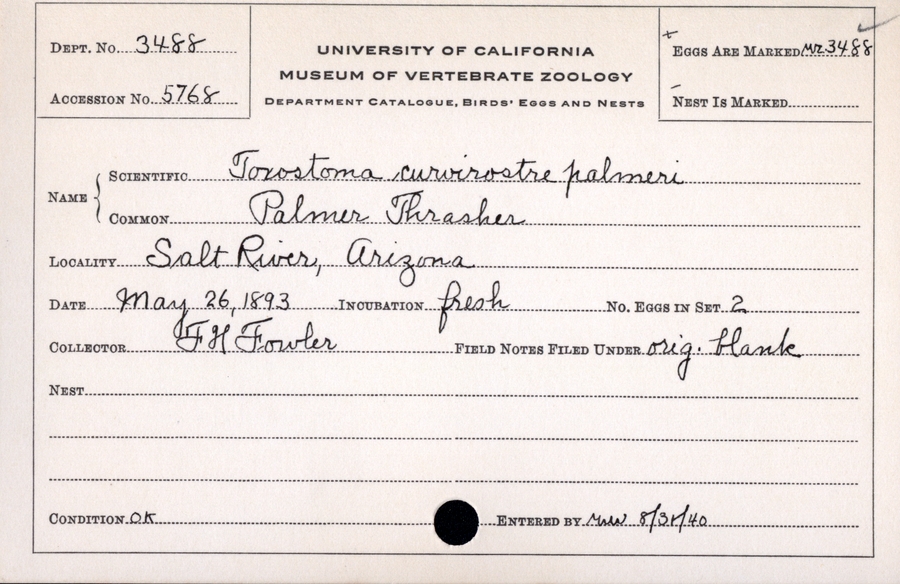 DEPT. NO. 3488
ACCESSION NO. 5768
UNIVERSITY OF CALIFORNIA
MUSEUM OF VERTEBRATE ZOOLOGY
DEPARTMENT CATALOGUE, BIRDS' EGGS AND NESTS
+ EGGS ARE MARKED 3488
- NEST IS MARKED
NAME { SCIENTIFIC Toxostoma curvirostre palmeri
COMMON Palmer Thrasher
LOCALITY Salt River, Arizona
DATE May 26, 1893 INCUBATION fresh NO. EGGS IN SET 2
COLLECTOR F H Fowler FIELD NOTES FILED UNDER orig. blank
NEST
CONDITION OK ENTERED BY 8/31/40